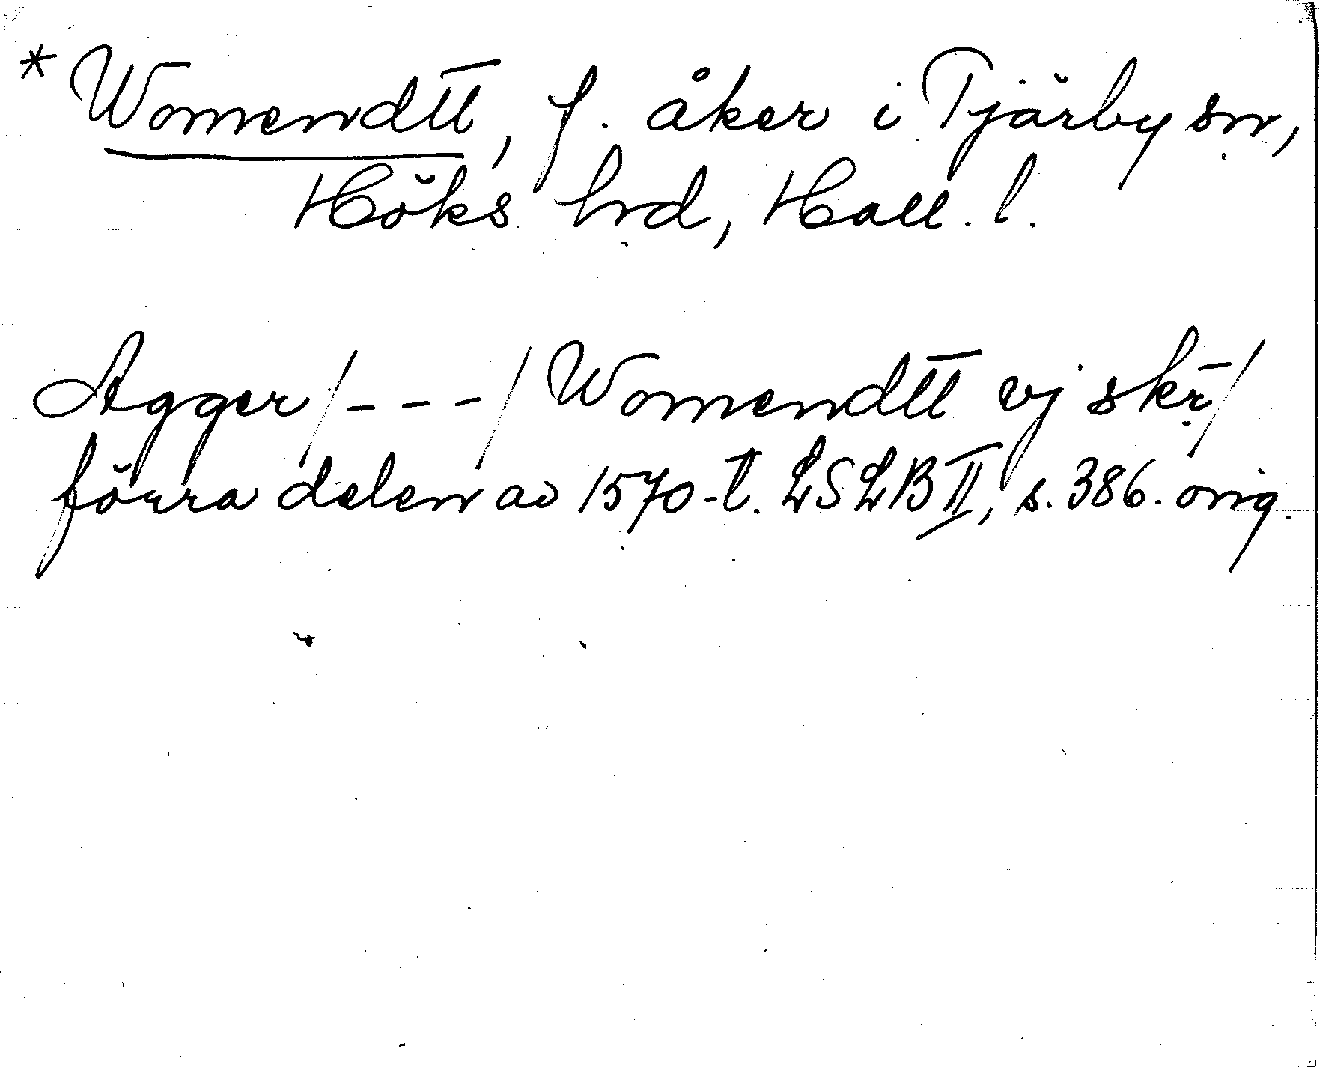 *Womendtt, f. åker i Tjärby sn,
Höks hrd, Hall. l.
Agger/---/Womendtt vj skr/
förra delen av 1570-t. LSLB II, s. 386. orig.